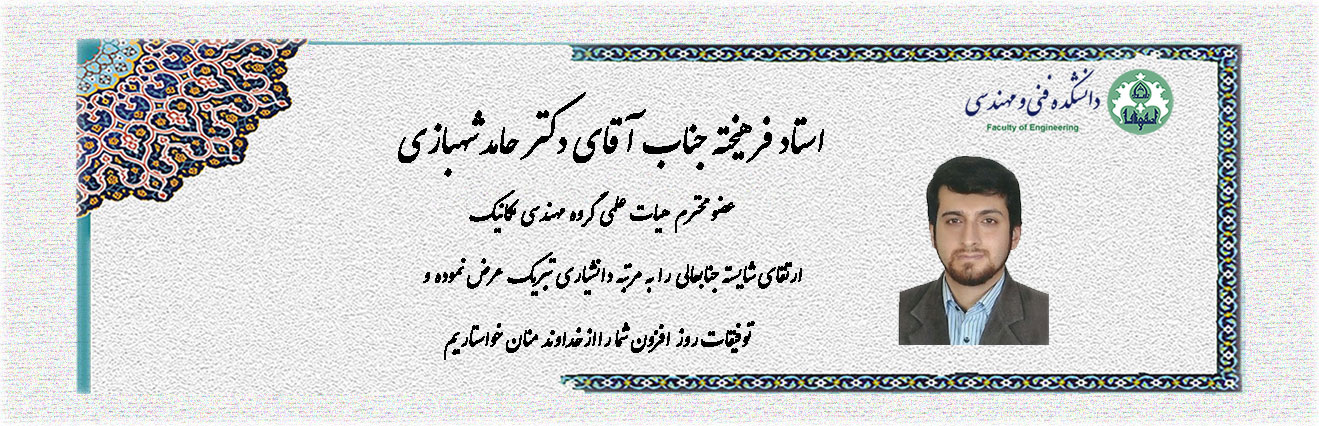 دانشکده فنی و مهندسی
Faculty of Engineering
استاد فرهیخته جناب آقای دکتر حامد شهبازی
عضو محترم هیات علمی گروه مهندسی مکانیک
ارتقای شایسته جنابعالی را به مرتبه دانشیاری تبریک عرض نموده و
توفیقات روز افزون شما را از خداوند منان خواستاریم